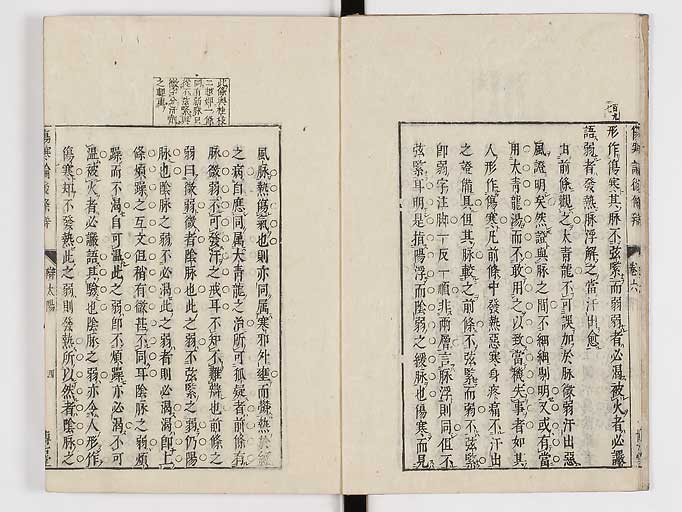 傷寒論後條辨 卷六
形作傷寒其脉不弦緊而弱弱者必渴被火者必讝
語弱者發熱脉浮解之當汗出愈
由前條觀之大青龍不可誤加於脉微弱汗出惡
風證明矣然證與脉之間不細細剔明又或有當
用大青龍湯而不敢用之以致當機失事者如其
人形作傷寒凡前條中發熱惡寒身疼痛不汗出
之證備具但其脉較之前條不弦緊而弱不弦緊
即弱字注脚一反一順非兩層言脉浮則同但不
弦緊耳明是損陽浮而陰弱之緩脉也傷寒而見
此條與桂枝
二越婢一條
同有弱脉只
從不弦緊與
微字分汗劑
之輕重
風脉熱傷氣也則亦同屬寒邪外壅而鬱熱於經
之病自應同屬大青龍之治所可狐疑者前條有
脉微弱不可發汗之戒耳不知不難辨也前條之
弱曰微弱微者陰脉也此之弱不弦緊之弱仍陽
脉也陰脉之弱不必渴此之弱者則必渴渴即上
條煩躁之互文但稍有微甚不同耳陰脉之弱煩
躁而不渴自可溫此之弱即不煩躁亦必渴不可
溫被火者必讝語其驗也陰脉之弱亦令人形作
傷寒却不發熱此之弱則發熱所以然者陰脉之
傷寒論後條辨 辨太陽 四